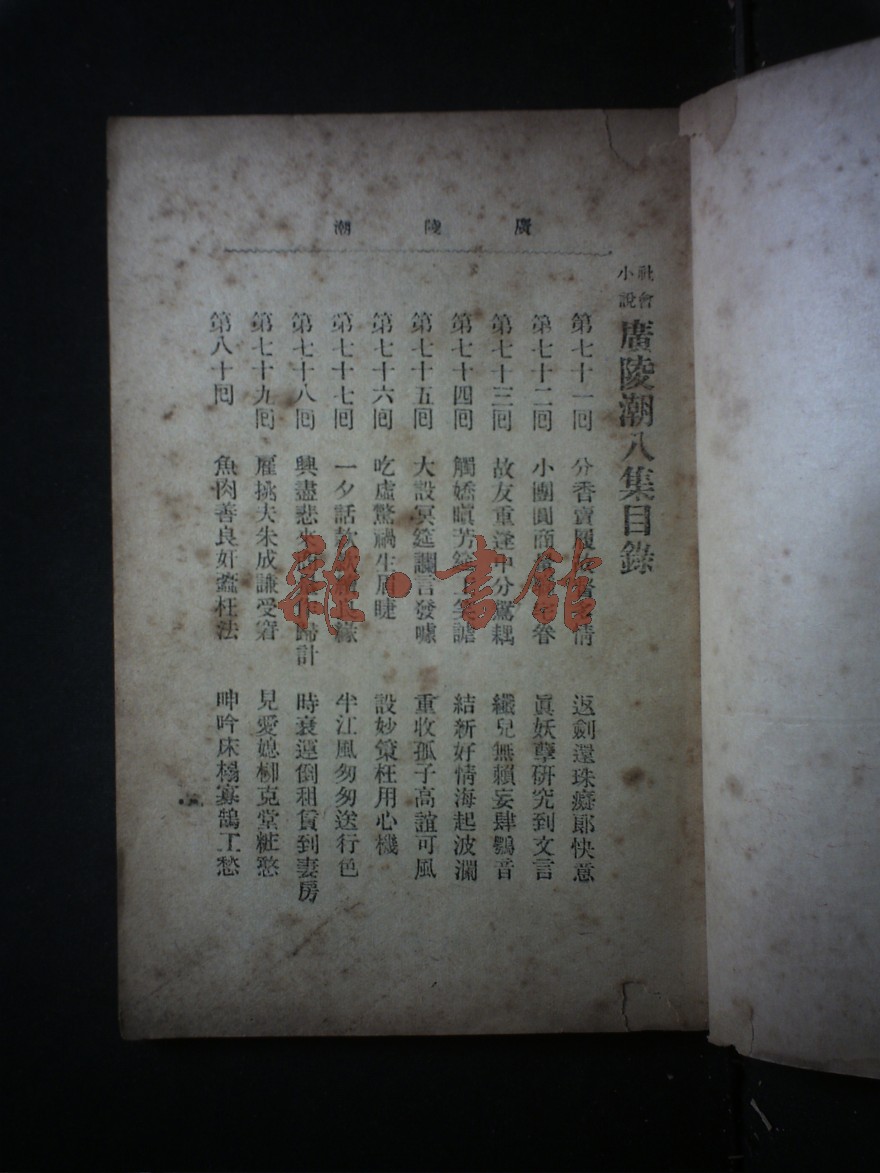 廣陵潮
社會小說 廣陵潮八集目錄
第七十一回 分香賣履 情 返劍還珠癡郎快意
第七十二回 小團圓商 卷 眞妖孽研究到文言
第七十三回 故友重逢中分鴛耦 纖兒無賴妄肆鴞音
第七十四回 觸嬌嗔芳筵 笑謔 結新好情海起波瀾
第七十五回 大設冥筵讕言發噱 重收孤子高誼可風
第七十六回 吃虛驚禍生眉睫 設妙策枉用心機
第七十七回 一夕話 緣 半江風匆匆送行色
第七十八回 興盡悲來 歸計 時衰運倒租賃到妻房
第七十九回 雇挑夫朱成謙受窘 見愛媳柳克堂粧憨
第八十回 魚肉善良奸蠹枉法 呻吟床榻寡鵠工愁
雜·書館